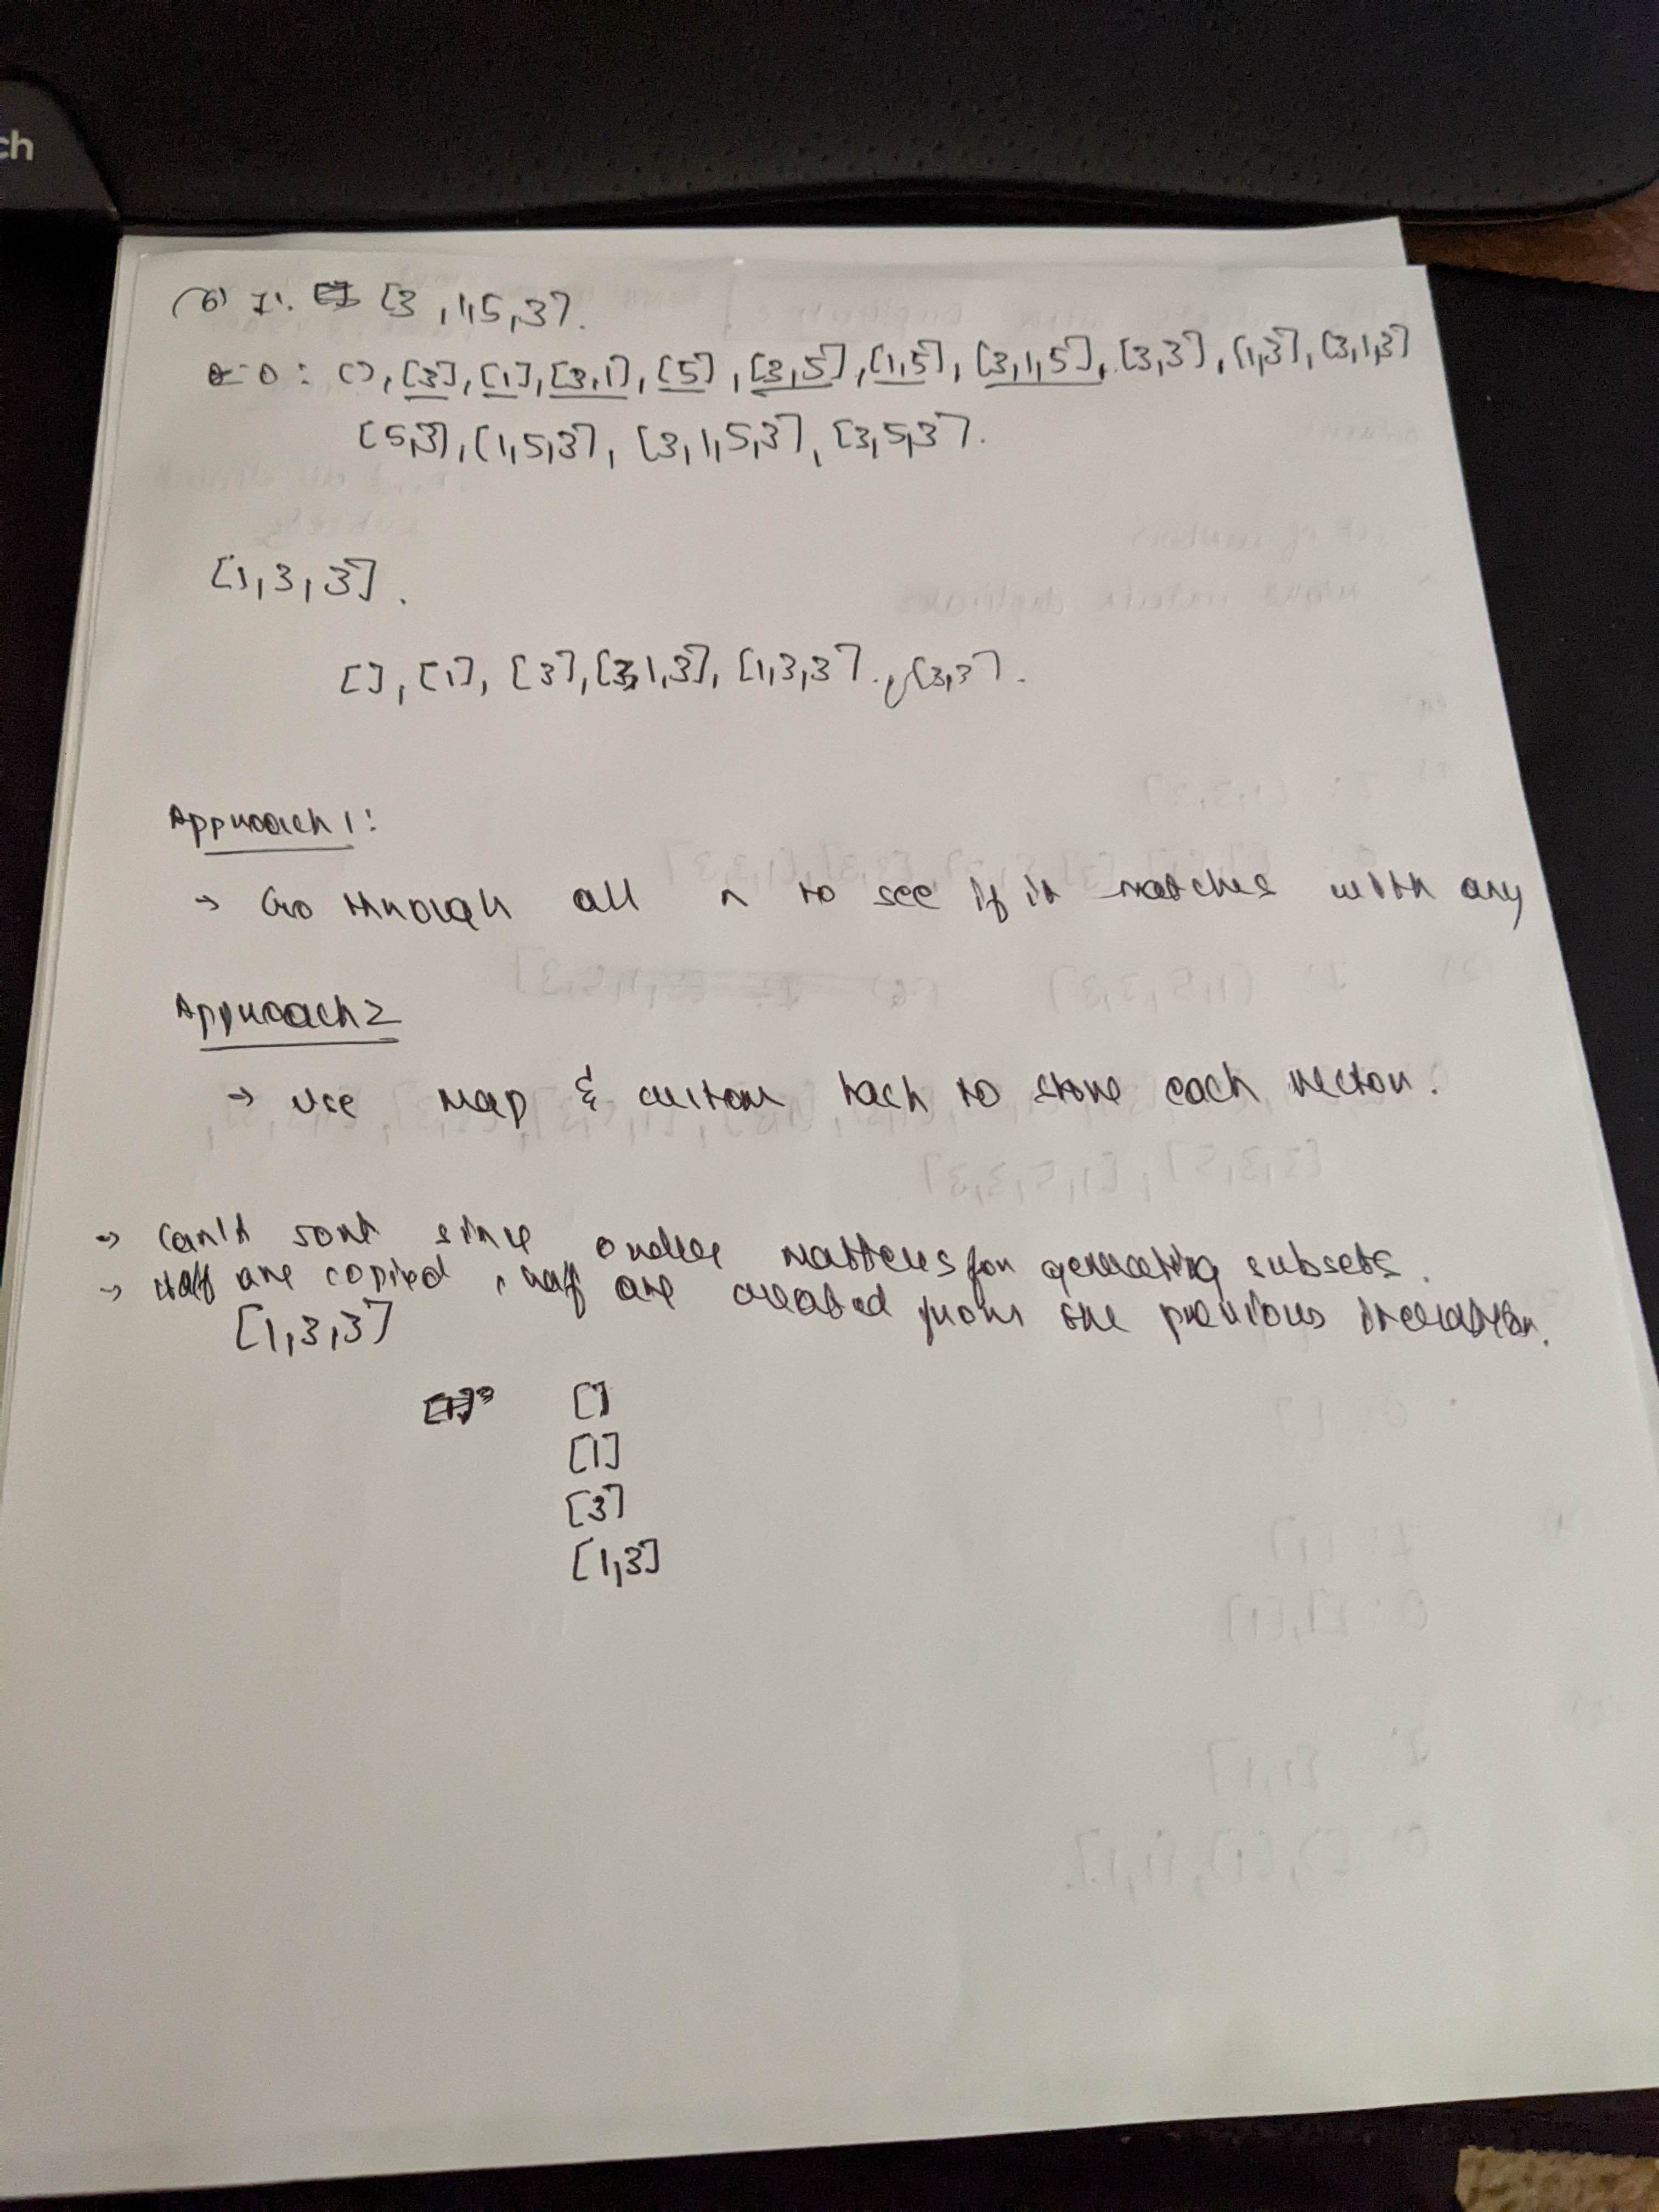 ch
(6) I: [3,1,5,3].
O: [], [3], [1], [3,1], [5], [3,5], [1,5], [3,1,5], [3,3], [1,3], [3,1,3]
[5,3], [1,5,3], [3,1,5,3], [3,5,3].
[1,3,3].
[], [1], [3], [3,1,3], [1,3,3], [3,3].
Approach 1:
→ Go through all n to see if it matches with any
Approach 2
→ Use map & custom hash to store each vector.
→ Can't sort since order matters for generating subsets.
→ Half are copied, half are created from the previous iteration.
[1,3,3]
[]
[1]
[3]
[1,3]